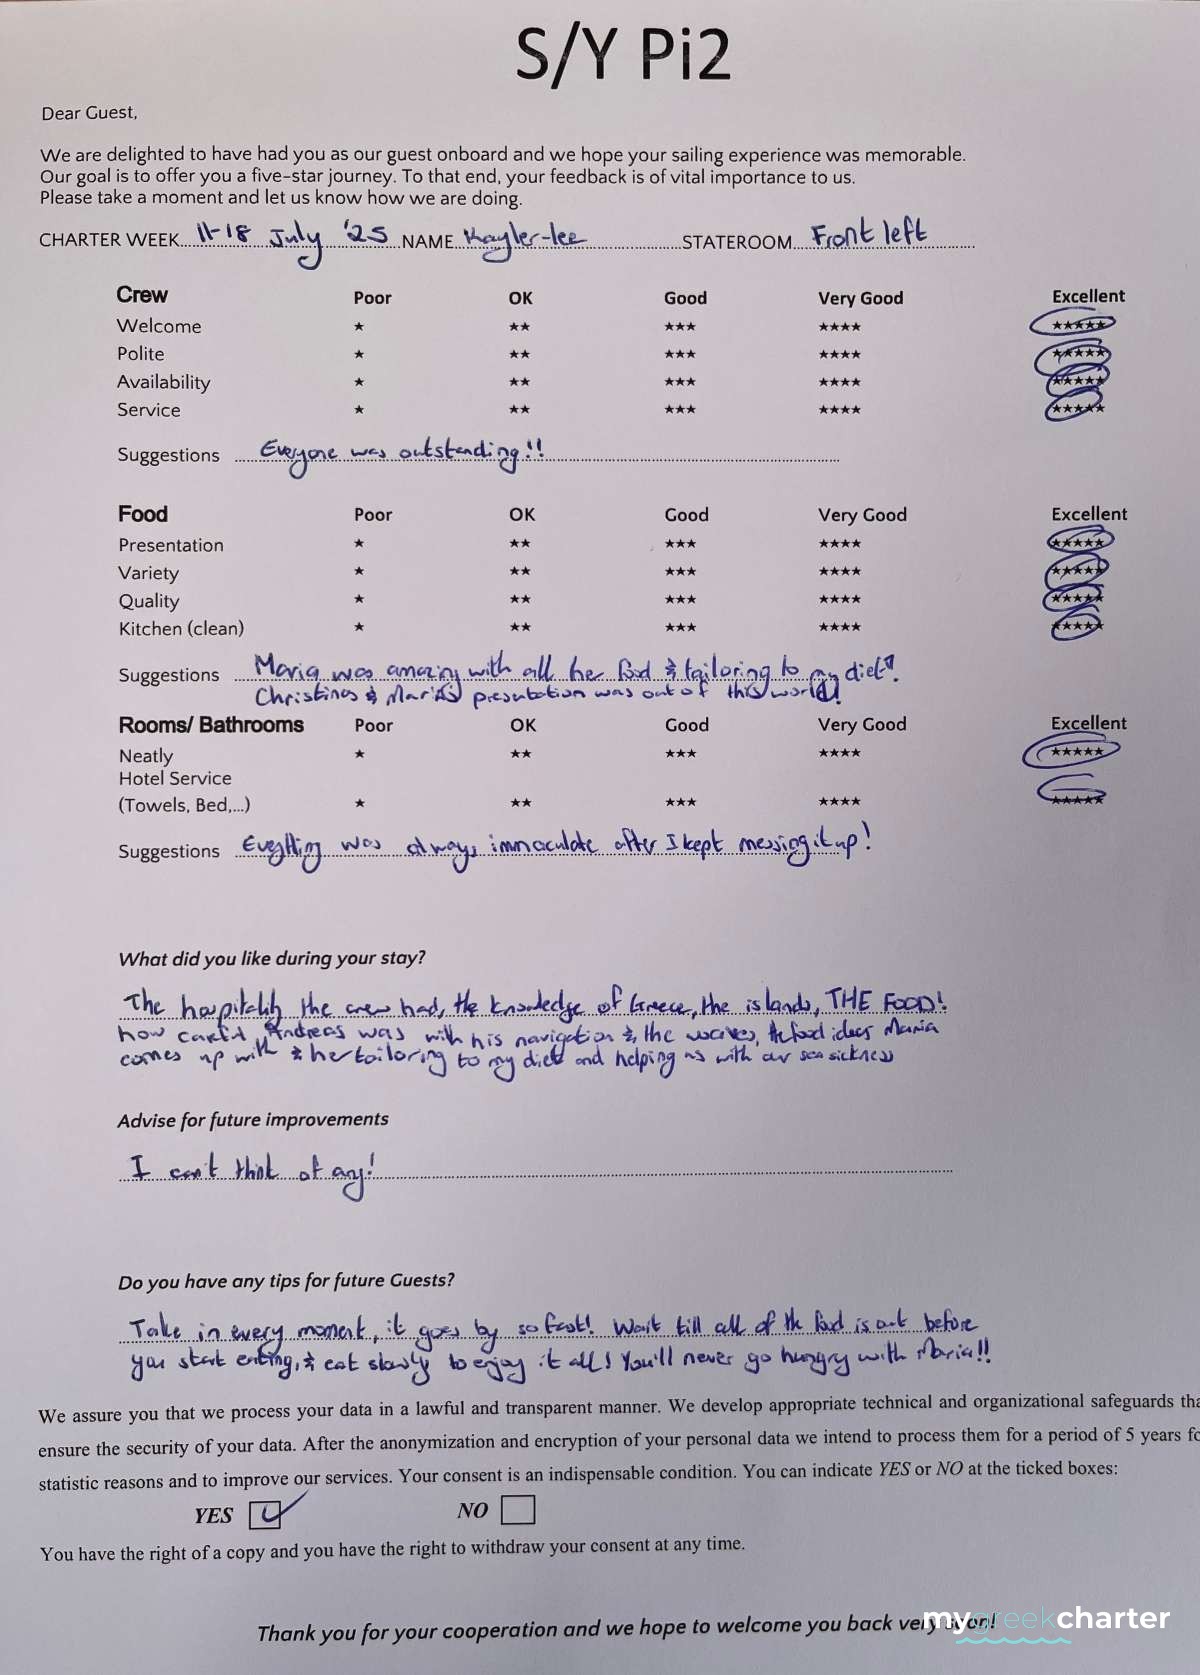 S/Y Pi2
Dear Guest,
We are delighted to have had you as our guest onboard and we hope your sailing experience was memorable.
Our goal is to offer you a five-star journey. To that end, your feedback is of vital importance to us.
Please take a moment and let us know how we are doing.
CHARTER WEEK 11-18 July '25 NAME Kayler-lee STATEROOM Front left
Crew Poor OK Good Very Good Excellent
Welcome ★ ★★ ★★★ ★★★★ ★★★★★
Polite ★ ★★ ★★★ ★★★★ ★★★★★
Availability ★ ★★ ★★★ ★★★★ ★★★★★
Service ★ ★★ ★★★ ★★★★ ★★★★★
Suggestions Everyone was outstanding!!
Food Poor OK Good Very Good Excellent
Presentation ★ ★★ ★★★ ★★★★ ★★★★★
Variety ★ ★★ ★★★ ★★★★ ★★★★★
Quality ★ ★★ ★★★ ★★★★ ★★★★★
Kitchen (clean) ★ ★★ ★★★ ★★★★ ★★★★★
Suggestions Maria was amazing with all her food & tailoring to my diet!
Christinas & Maria's presentation was out of this world!
Rooms/ Bathrooms Poor OK Good Very Good Excellent
Neatly ★ ★★ ★★★ ★★★★ ★★★★★
Hotel Service
(Towels, Bed,...) ★ ★★ ★★★ ★★★★ ★★★★★
Suggestions Everything was always immaculate after I kept messing it up!
What did you like during your stay?
The hospitality the crew had, the knowledge of Greece, the islands, THE FOOD!
how careful Andreas was with his navigation & the waves, the food ideas Maria
comes up with & her tailoring to my diet and helping us with our sea sickness
Advise for future improvements
I can't think of any!
Do you have any tips for future Guests?
Take in every moment, it goes by so fast! Wait till all of the food is out before
you start eating, & eat slowly to enjoy it all! You'll never go hungry with Maria!!
We assure you that we process your data in a lawful and transparent manner. We develop appropriate technical and organizational safeguards tha
ensure the security of your data. After the anonymization and encryption of your personal data we intend to process them for a period of 5 years fo
statistic reasons and to improve our services. Your consent is an indispensable condition. You can indicate YES or NO at the ticked boxes:
YES NO
You have the right of a copy and you have the right to withdraw your consent at any time.
Thank you for your cooperation and we hope to welcome you back very soon!
mygreekcharter